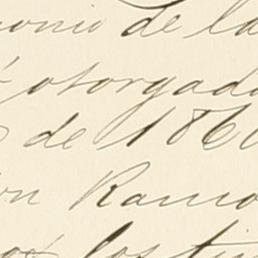 onio de la
otorgado
de 1860
on Ramo
los